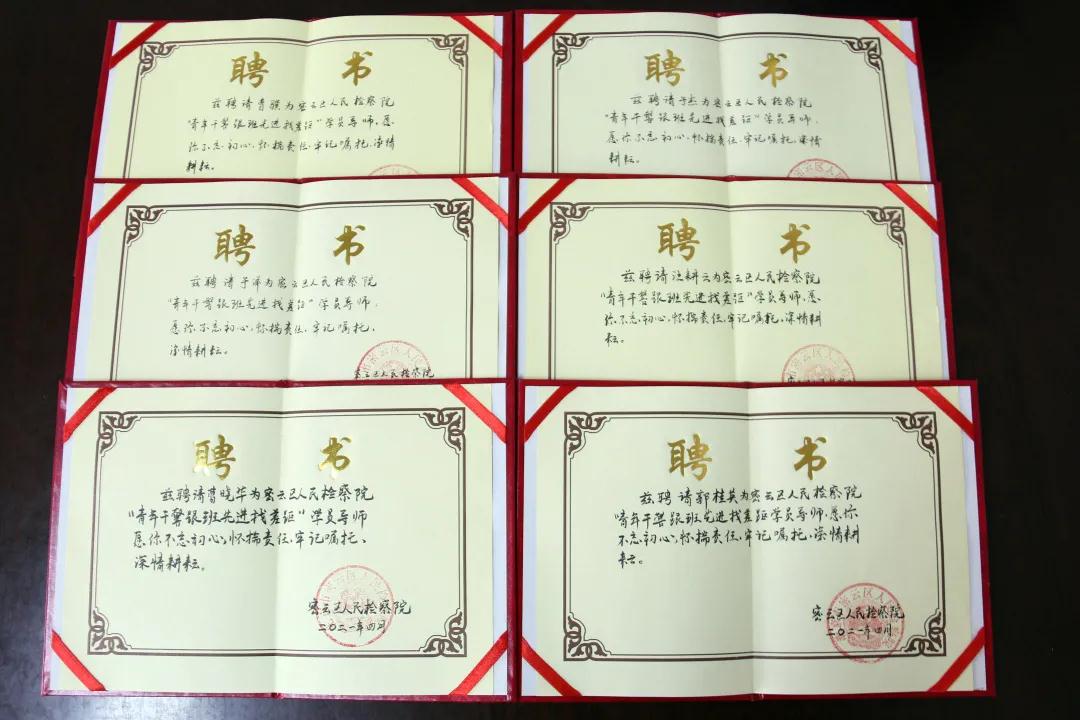 聘 书
兹聘请曹为密云区人民检察院
“青年干警跟班先进找差距”学员导师,愿
你不忘初心、怀揣责任、牢记嘱托、深情
耕耘。
聘 书
兹聘请于杰为密云区人民检察院
“青年干警跟班先进找差距”学员导师,
愿你不忘初心、怀揣责任、牢记嘱托、深情
耕耘。
密云区人民
聘 书
兹聘请于为密云区人民检察院
“青年干警跟班先进找差距”学员导师,
愿你不忘初心、怀揣责任、牢记嘱托、
深情耕耘。
密云区人民检察院
聘 书
兹聘请汪耕云为密云区人民检察院
“青年干警跟班先进找差距”学员导师,愿
你不忘初心、怀揣责任、牢记嘱托、深情耕
耘。
密云区人民检察院
聘 书
兹聘请曹晓华为密云区人民检察院
“青年干警跟班先进找差距”学员导师
愿你不忘初心、怀揣责任、牢记嘱托、
深情耕耘。
密云区人民检察院
二〇二一年四月
聘 书
兹聘请郭桂英为密云区人民检察院
“青年干警跟班先进找差距”学员导师,愿你
不忘初心、怀揣责任、牢记嘱托、深情耕
耘。
密云区人民检察院
二〇二一年四月